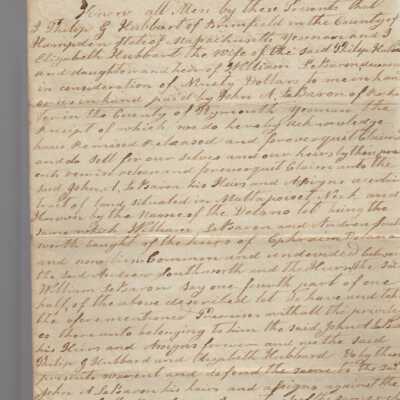 Know all Men by these Presents that
I Philip G Hubbart of Brimfield in the County of
Hampden State of Massachusetts Yeoman and I
Elizabeth Hubbart the Wife of the said Philip Hubbard
and daughter and heir of William LeBaron deceased
in consideration of Ninety Dollars to me in hand
in hand paid by John A. LeBaron of
in the County of Plymouth Yeoman the
Receipt of which we do hereby acknowledge
have Remised Released and forever quit Claim
and do sell for our selves and our heirs by these presents
remise release and forever quit Claim unto the
said John A. LeBaron his Heirs and Assigns a certain
tract of land situated in Mattapoisett Neck and
Known by the Name of the Delano lot being the
same which William LeBaron and Andrew South
worth bought of the heirs of Ephraim
and now lies in Common and undivided between
the said Andrew Southworth and the Heirs of the said
William LeBaron Say one fourth part of one
half of the above described lot to have and to hold
the afore mentioned Premises with all the privileges
there unto belonging to him the said John A LeBaron
his Heirs and Assigns forever and we the said
Philip G Hubbard and Elizabeth Hubbard by these
presents warrent and defend the same to the said
John A LeBaron his heirs and assigns against the